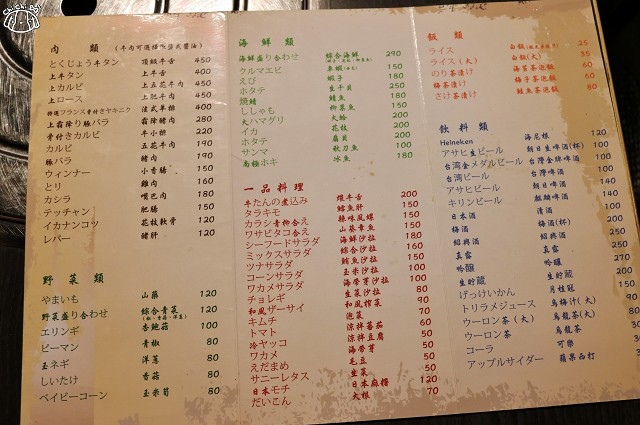 Chi Chi Bo
肉 類 (牛肉可選擇味噌或醬油)
とくじょう牛タン 頂級牛舌 450
上牛タン 上牛舌 400
上カルビ 上五花牛肉 450
上ロース 上肥牛肉 450
特選フランス骨付きヤキニク 法式羊排 400
上霜降り豚バラ 霜降豬肉 280
骨付きカルビ 牛小排 220
カルビ 五花牛肉 190
豚バラ 豬肉 190
ウィンナー 小香腸 150
とり 雞肉 160
カシラ 嘴巴肉 180
テッチャン 肥腸 150
イカナンコツ 花枝軟骨 120
レバー 豬肝 120
野 菜 類
やまいも 山藥 120
野菜盛り合わせ 綜合青菜 120
エリンギ 杏鮑菇 100
ピーマン 青椒 80
玉ネギ 洋蔥 80
しいたけ 香菇 80
ベイビーコーン 玉米筍 80
海 鮮 類
海鮮盛り合わせ 綜合海鮮 290
クルマエビ 車蝦 150
えび 蝦子 180
ホタテ 生干貝 250
焼鯖 鯖魚 150
ししゃも 柳葉魚 150
大ハマグリ 大蛤 200
イカ 花枝 180
ホタテ 扇貝 150
サンマ 秋刀魚 100
南極ホキ 冰魚 180
一 品 料 理
牛たんの煮込み 燉牛舌 200
タラキモ 鱈魚肝 150
カラシ青柳合え 辣味風螺 150
ワサビタコ合え 山葵章魚 150
シーフードサラダ 海鮮沙拉 180
ミックスサラダ 綜合沙拉 160
ツナサラダ 鮪魚沙拉 150
コーンサラダ 玉米沙拉 150
ワカメサラダ 海帶芽沙拉 150
チョレギ 生菜沙拉 80
和風ザーサイ 和風榨菜 90
キムチ 泡菜 70
トマト 涼拌蕃茄 60
冷ヤッコ 涼拌豆腐 50
ワカメ 海帶芽 50
えだまめ 毛豆 50
サニーレタス 生菜 50
日本モチ 日本麻糬 120
だいこん 大根 70
飯 類
ライス 白飯 25
ライス(大) 白飯(大) 35
のり茶漬け 海苔茶泡飯 60
梅茶漬け 梅子茶泡飯 60
さけ茶漬け 鮭魚茶泡飯 80
飲 料 類
Heineken 海尼根 120
アサヒ生ビール 朝日生啤酒(杯) 100
台湾金メダルビール 台灣金牌啤酒
台湾ビール 台灣啤酒
アサヒビール 朝日啤酒
キリンビール 麒麟啤酒
日本酒 清酒
梅酒 梅酒(杯)
紹興酒 紹興酒
真露 真露
吟醸 吟釀
生貯蔵 生貯蔵
げっけいかん 月桂冠
トリラメジュース 烏梅汁(大)
ウーロン茶(大) 烏龍茶(大)
ウーロン茶 烏龍茶
コーラ 可樂
アップルサイダー 蘋果西打